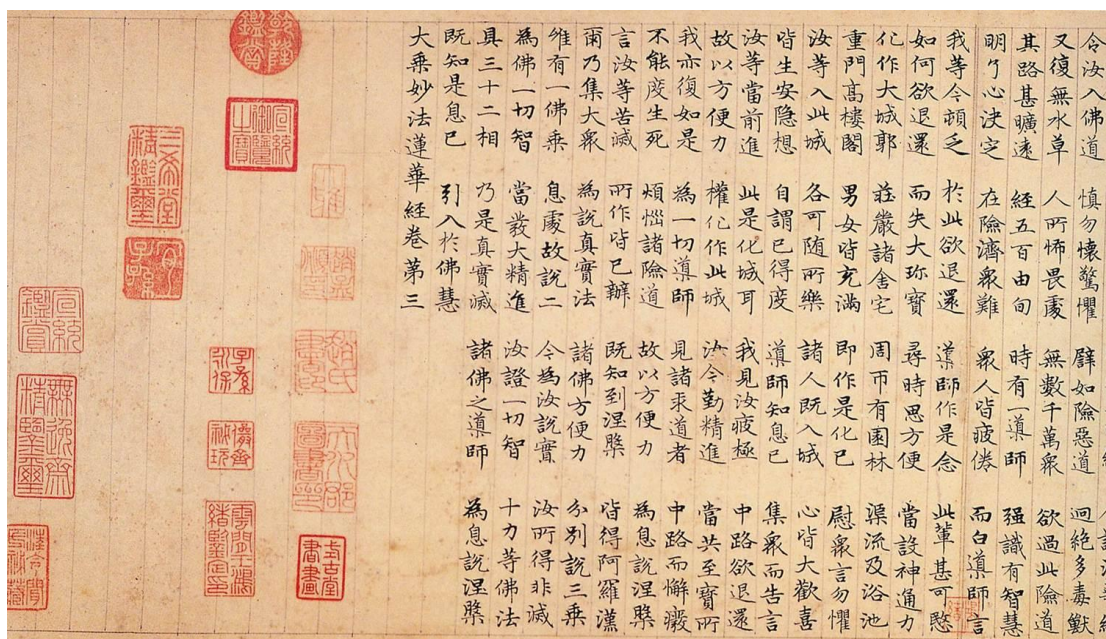 令汝入佛道 慎勿懷驚懼 譬如險惡道 迥絕多毒獸
又復無水草 人所怖畏處 無數千萬眾 欲過此險道
其路甚曠遠 經五百由旬 時有一導師 强識有智慧
明了心決定 在險濟眾難 眾人皆疲倦 而白導師言
我等今頓乏 於此欲退還 導師作是念 此輩甚可愍
如何欲退還 而失大珎寶 尋時思方便 當設神通力
化作大城郭 莊嚴諸舍宅 周帀有園林 渠流及浴池
重門高樓閣 男女皆充滿 即作是化已 慰眾言勿懼
汝等入此城 各可随所樂 諸人既入城 心皆大歡喜
皆生安隱想 自謂已得度 導師知息已 集眾而告言
汝等當前進 此是化城耳 我見汝疲極 中路欲退還
故以方便力 權化作此城 汝今勤精進 當共至寶所
我亦復如是 為一切導師 見諸求道者 中路而懈癈
不能度生死 煩惱諸險道 故以方便力 為息說涅槃
言汝等苦滅 所作皆已辦 既知到涅槃 皆得阿羅漢
爾乃集大眾 為說真實法 諸佛方便力 分別說三乘
唯有一佛乘 息處故說二 今為汝說實 汝所得非滅
為佛一切智 當發大精進 汝證一切智 十力等佛法
具三十二相 乃是真實滅 諸佛之導師 為息說涅槃
既知是息已 引入於佛慧
大乘妙法蓮華經卷第三
乾隆鑑賞
宣統御覽之寶
趙氏書印
式古堂書畫
子孫永保
三希堂精鑑璽
宜子孫
宣統鑑賞
無逸齋精鑒璽